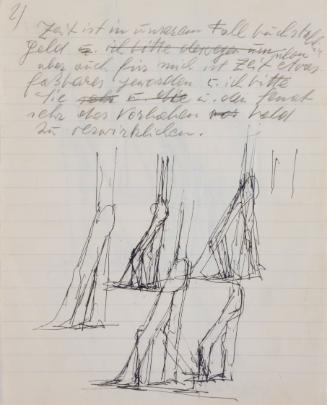 2)
Zeit ist in unserem Fall buchstäbl.
Geld u. ich bitte deswegen um
aber auch für mich ist Zeit etwas
faßbares geworden u. ich bitte
Sie sehr u. den
sehr das Vorhaben bald
zu verwirklichen.